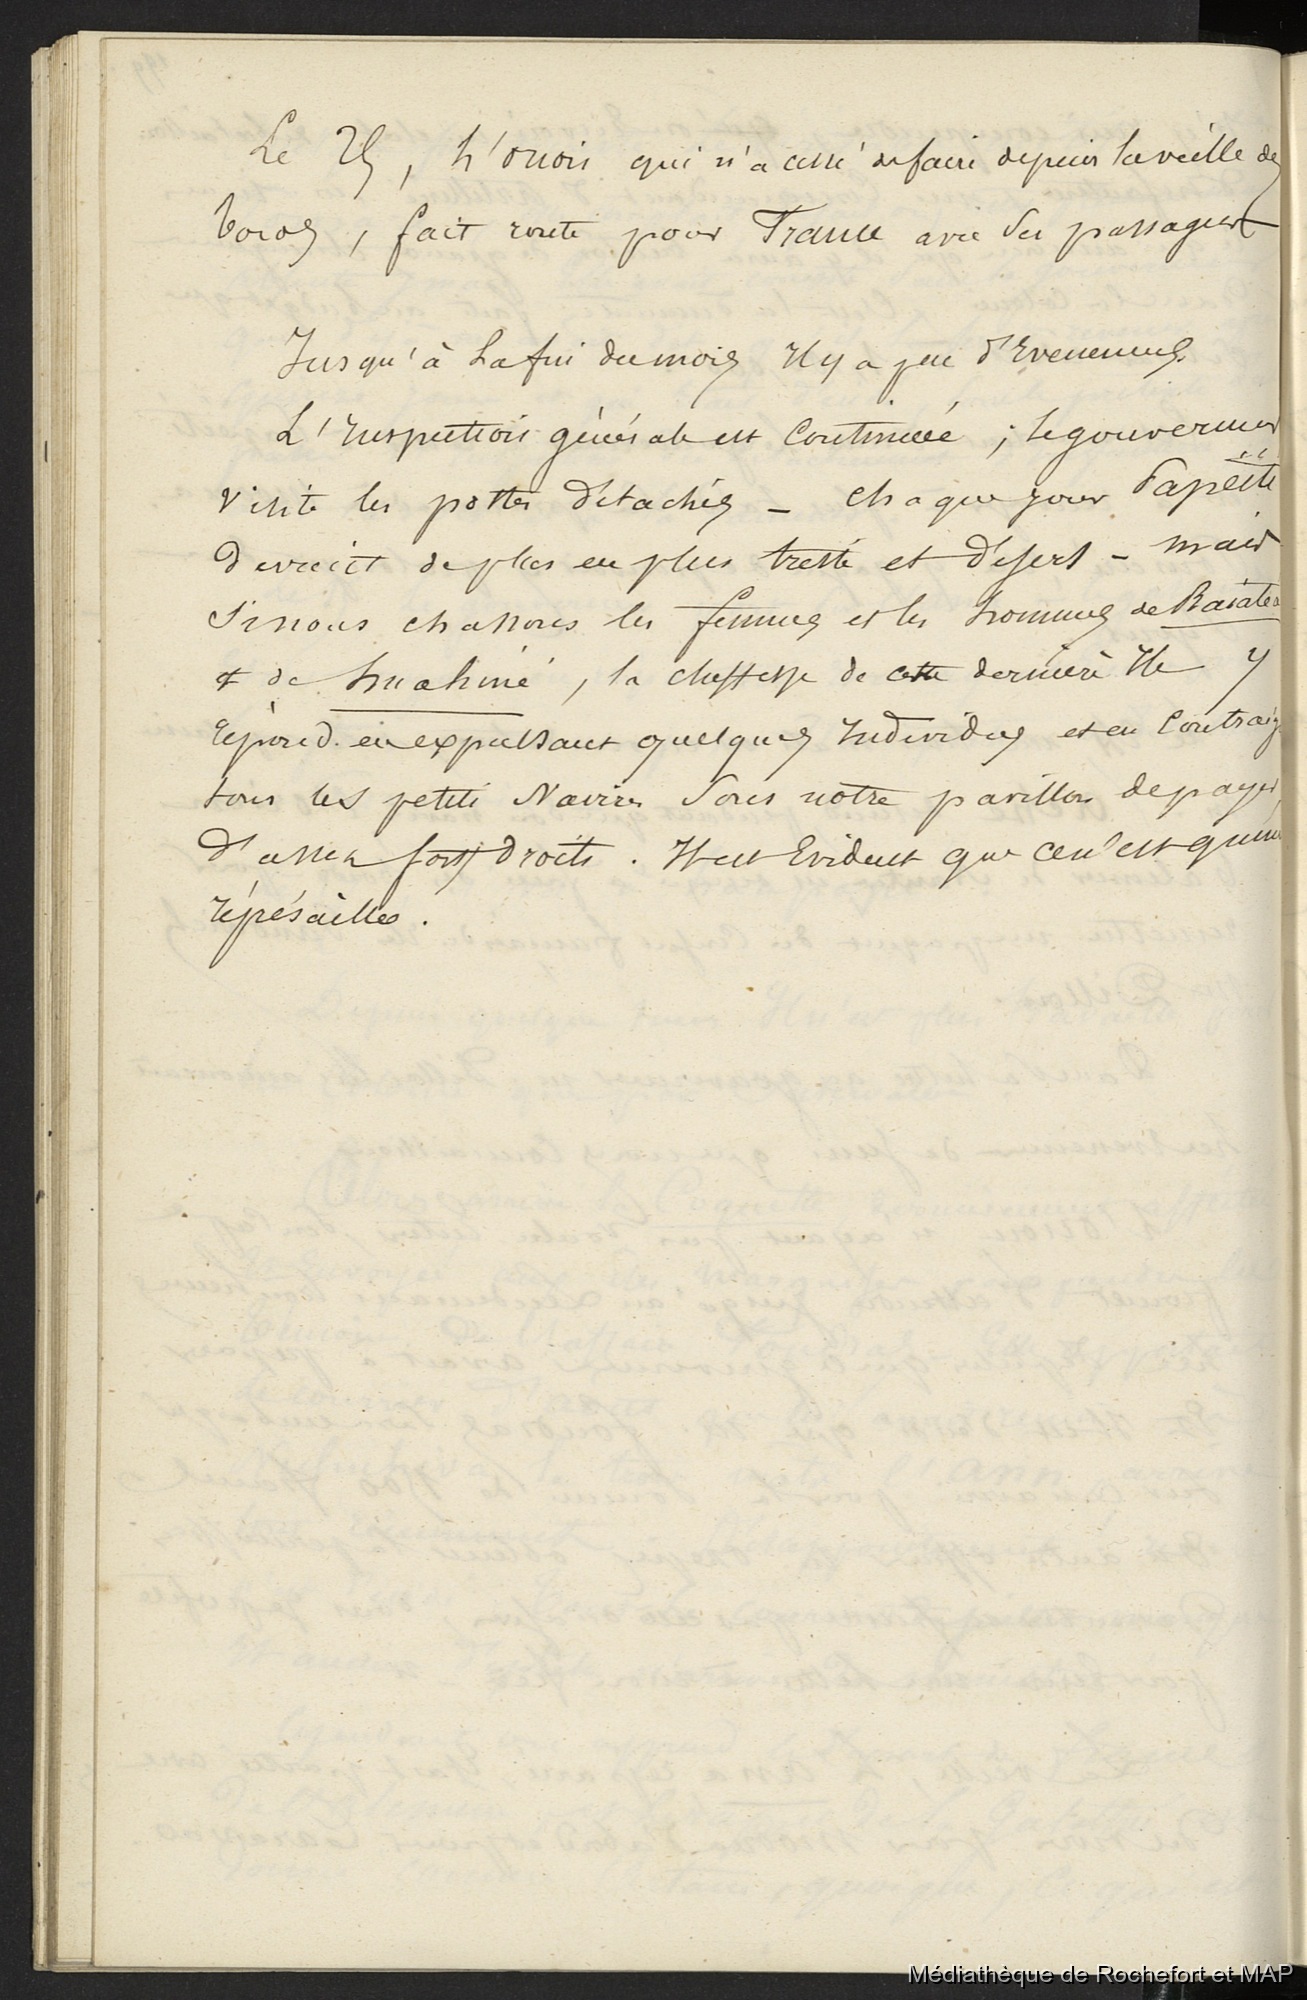 Le 25, L'orion qui n'a cessé de faire depuis la veille des
bords, fait route pour France avec ses passagers
Jusqu'à la fin du mois Il y a peu d'Evenements.
L'Inspection générale est continuée ; le gouverneur
visite les postes détachés _ chaque jour Papeïti
devient de plus en plus triste et désert - mais
si nous chassons les femmes et les hommes de Raiatea
& de huahiné, la cheffesse de cette dernière Ile y
répond en expulsant quelques Individus et en contraig
tous les petits Navires sous notre pavillon de payer
d'assez forts droits. Il est Evident que ce n'est qu'une
réprésailles.
Médiathèque de Rochefort et MAP